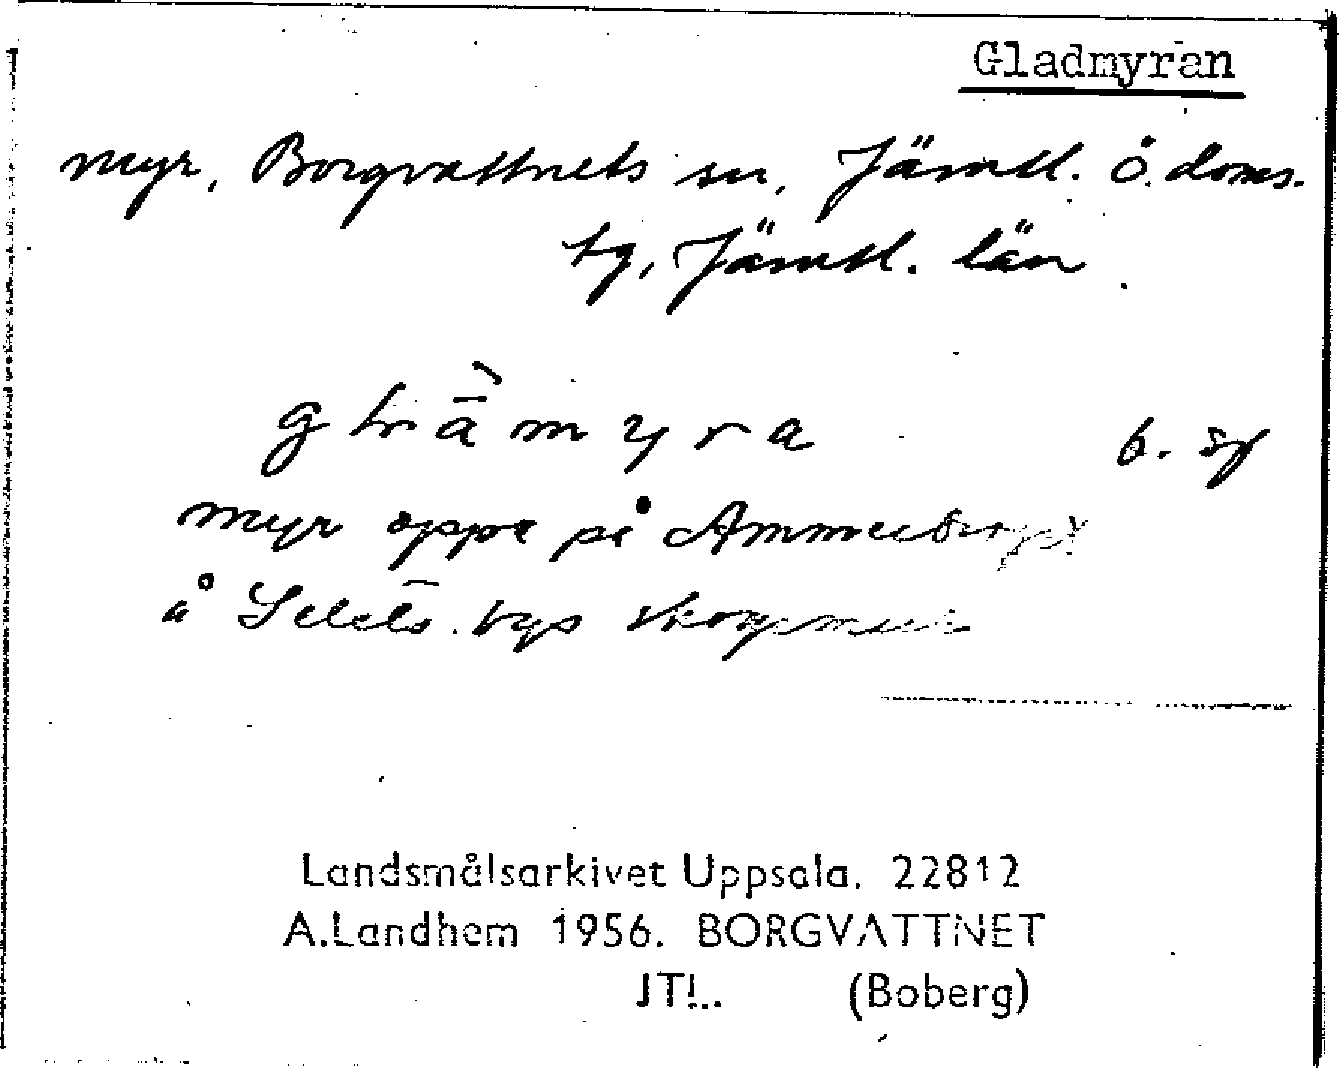 Gladmyran
myr, Borgvattnets sn, Jämtl. ö. doms.
tg, Jämtl. län
b. sg
myr oppe på Ammerberget
å Selets bys skog
Landsmålsarkivet Uppsala. 22812
A.Landhem 1956. BORGVATTNET
JTL. (Boberg)